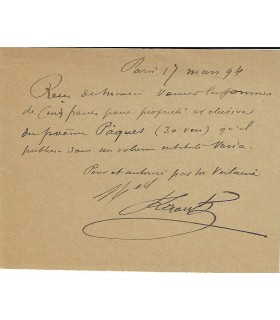 Paris 17 mars 94
Reçu de Monsieur Vanier la somme
de Cinq francs pour propriété exclusive
du poème Pâques (30 vers) qu'il
publiera dans un volume intitulé Varia.
Pour et autorisé par Mr Verlaine